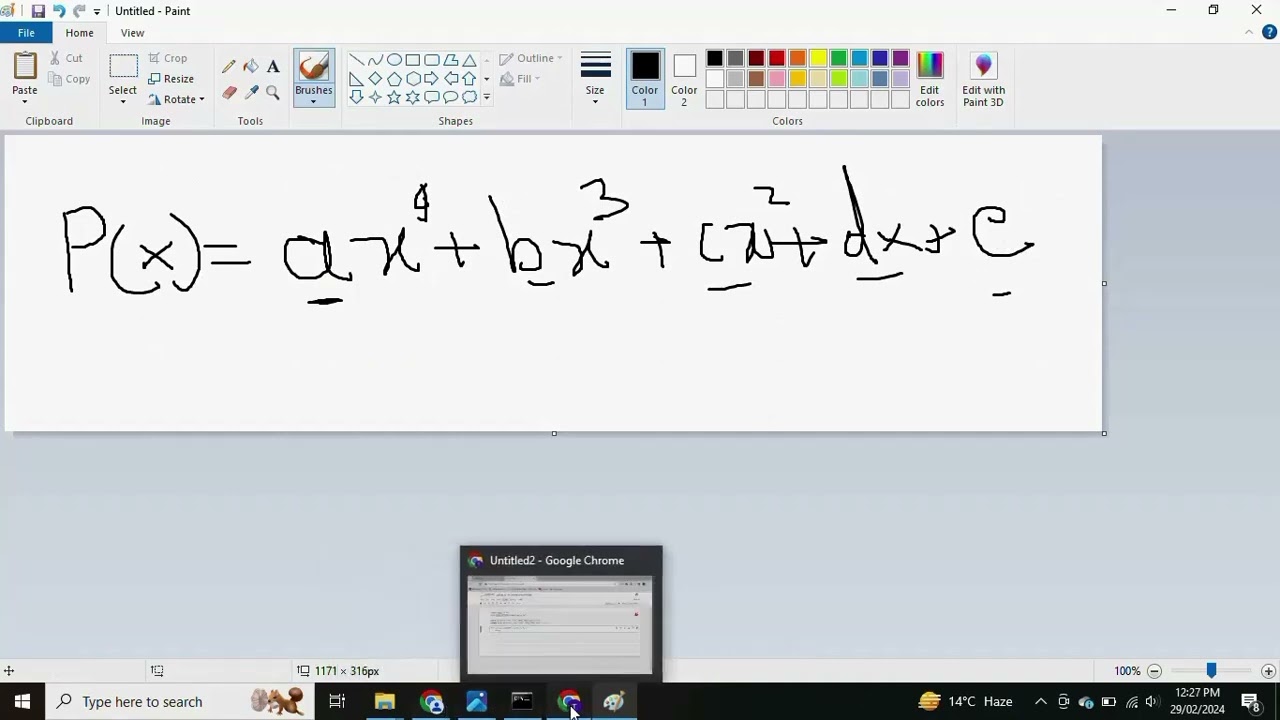 Untitled - Paint
File Home View
Paste
Cut
Copy
Clipboard
Select
Crop
Resize
Rotate
Image
Tools
Brushes
Shapes
Outline
Fill
Size
Color 1
Color 2
Colors
Edit colors
Edit with Paint 3D
P(x) = ax⁴ + bx³ + cx² + dx + e
Untitled2 - Google Chrome
1171 × 316px
100%
Type here to search
14°C Haze
12:27 PM
29/02/2024
8